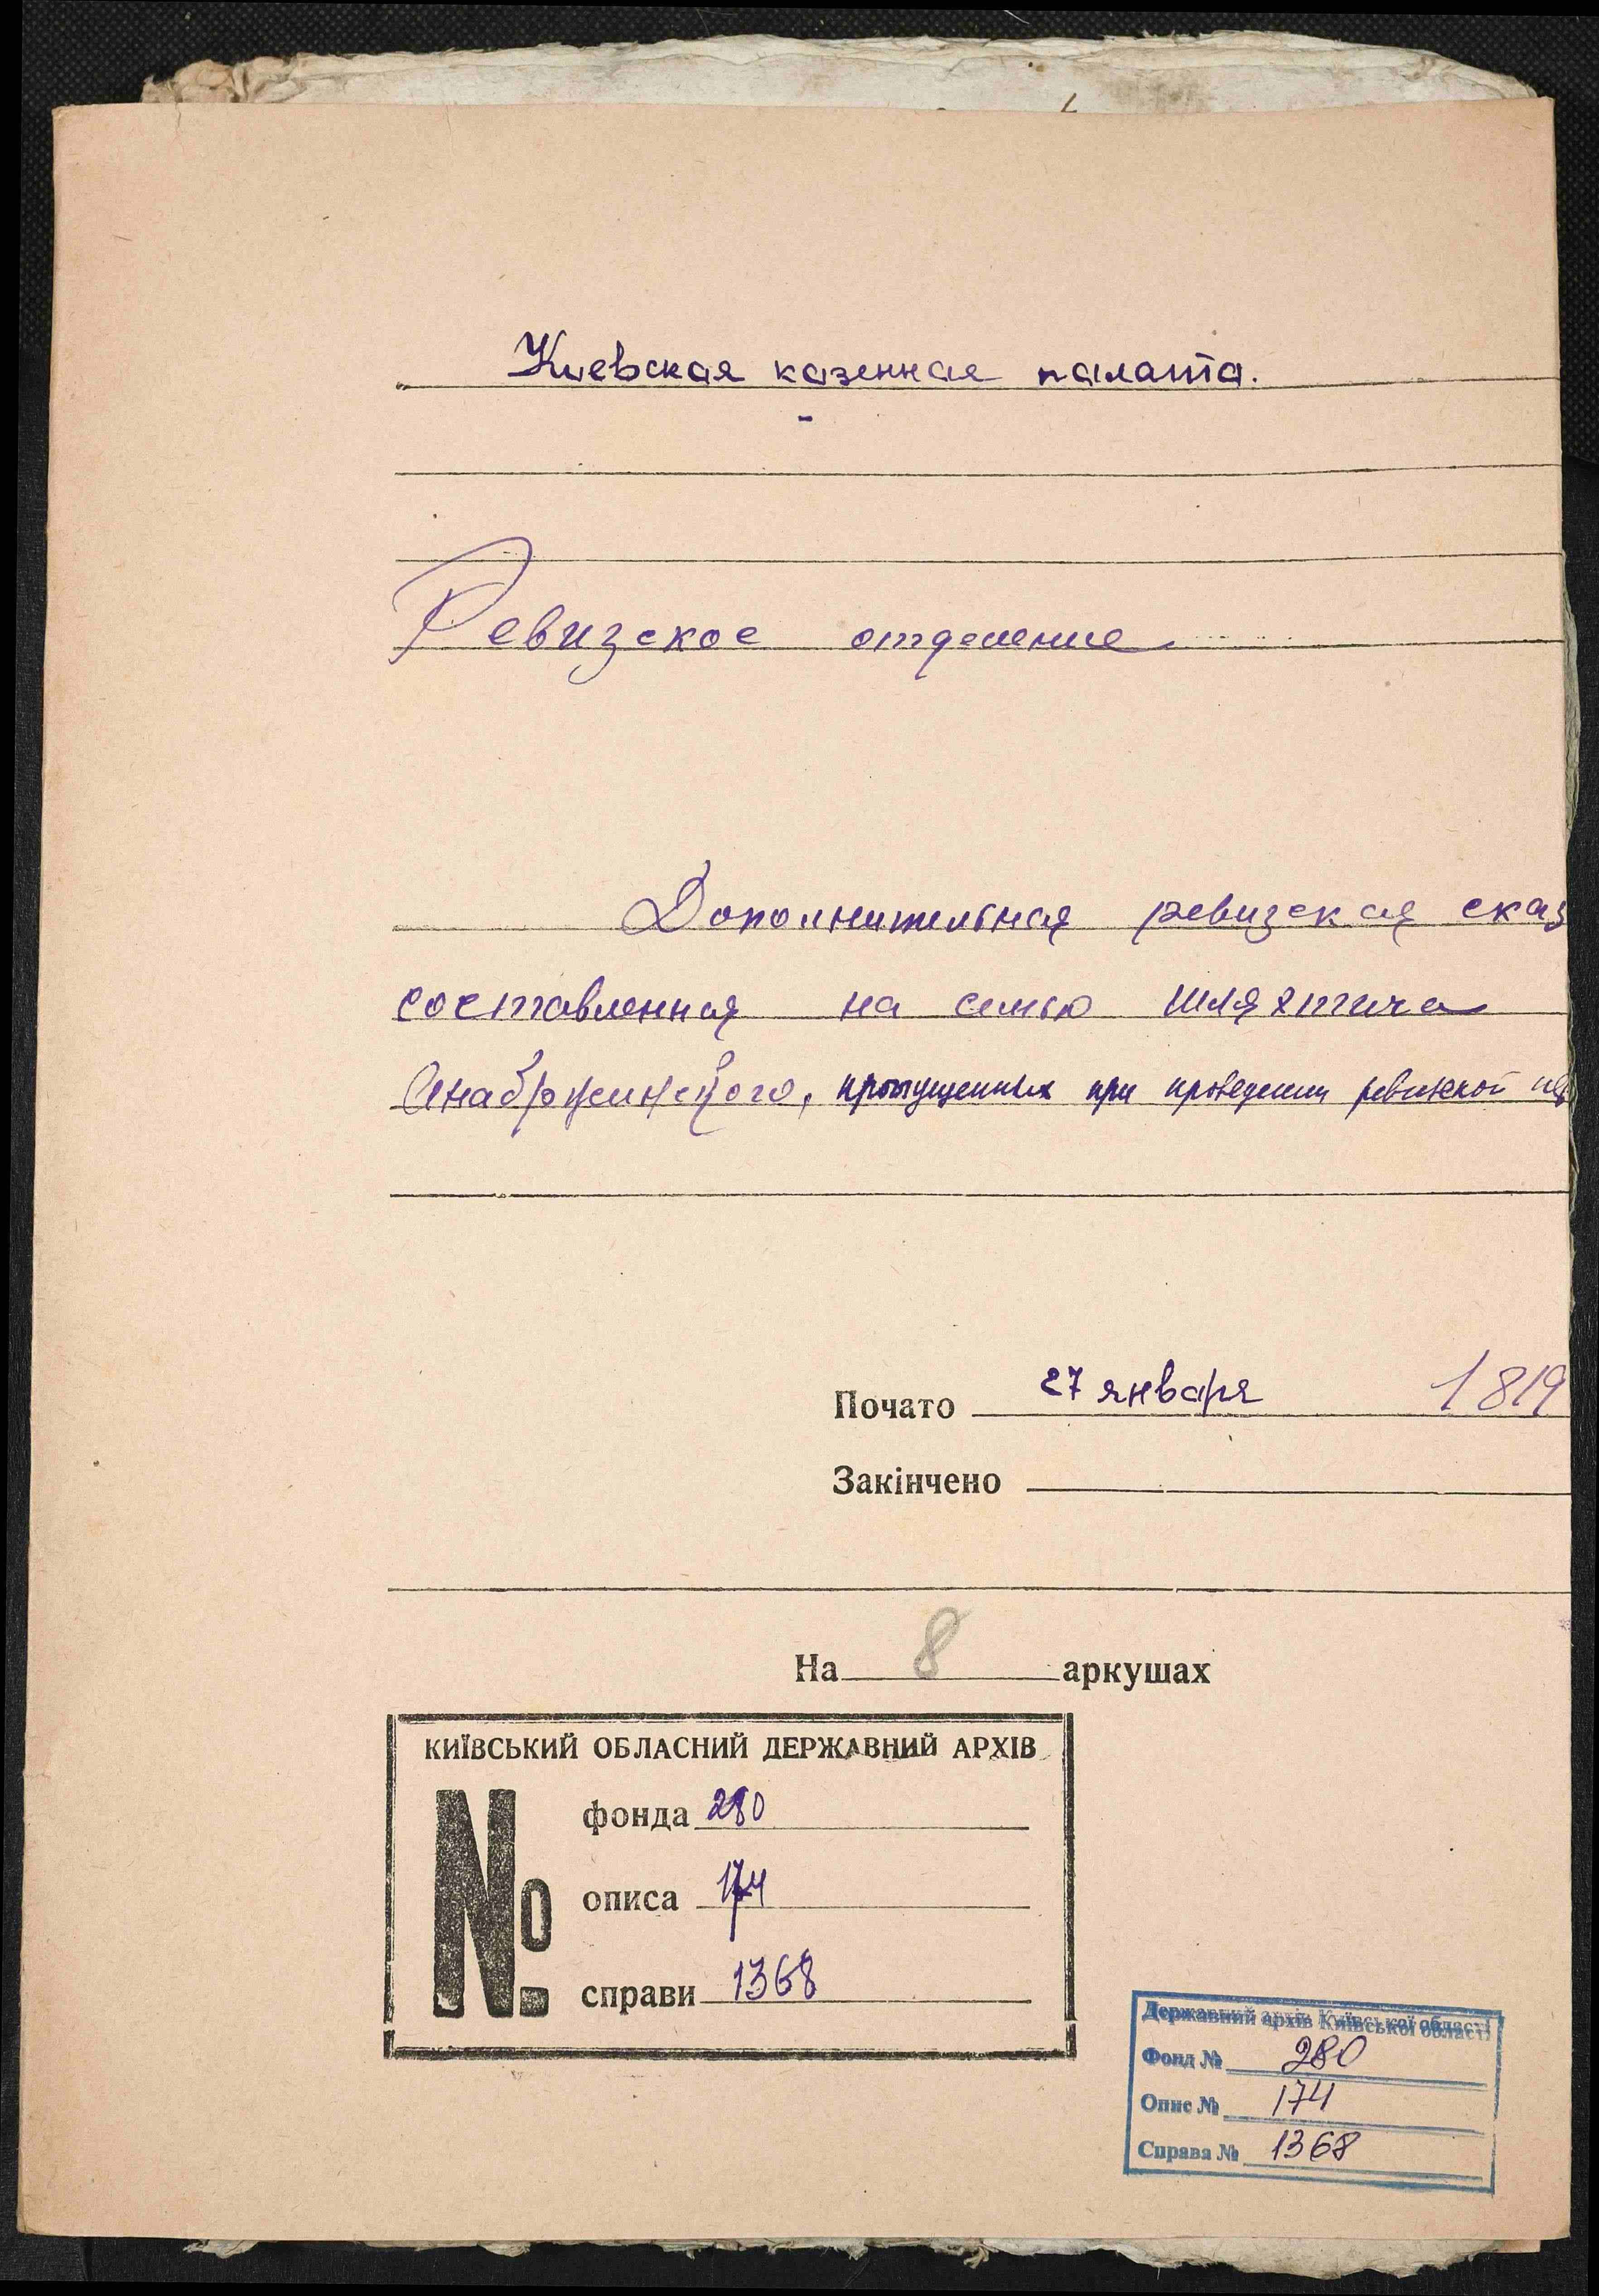 Киевская казенная палата.
Ревизское отделение
Дополнительная ревизская сказ
составленная на семью шляхтича
пропущенных при проведении ревизской
Почато 27 января 1819
Закінчено
На 8 аркушах
КИЇВСЬКИЙ ОБЛАСНИЙ ДЕРЖАВНИЙ АРХІВ
№
фонда 280
описа 174
справи 1368
Державний архів Київської області
Фонд № 280
Опис № 174
Справа № 1368